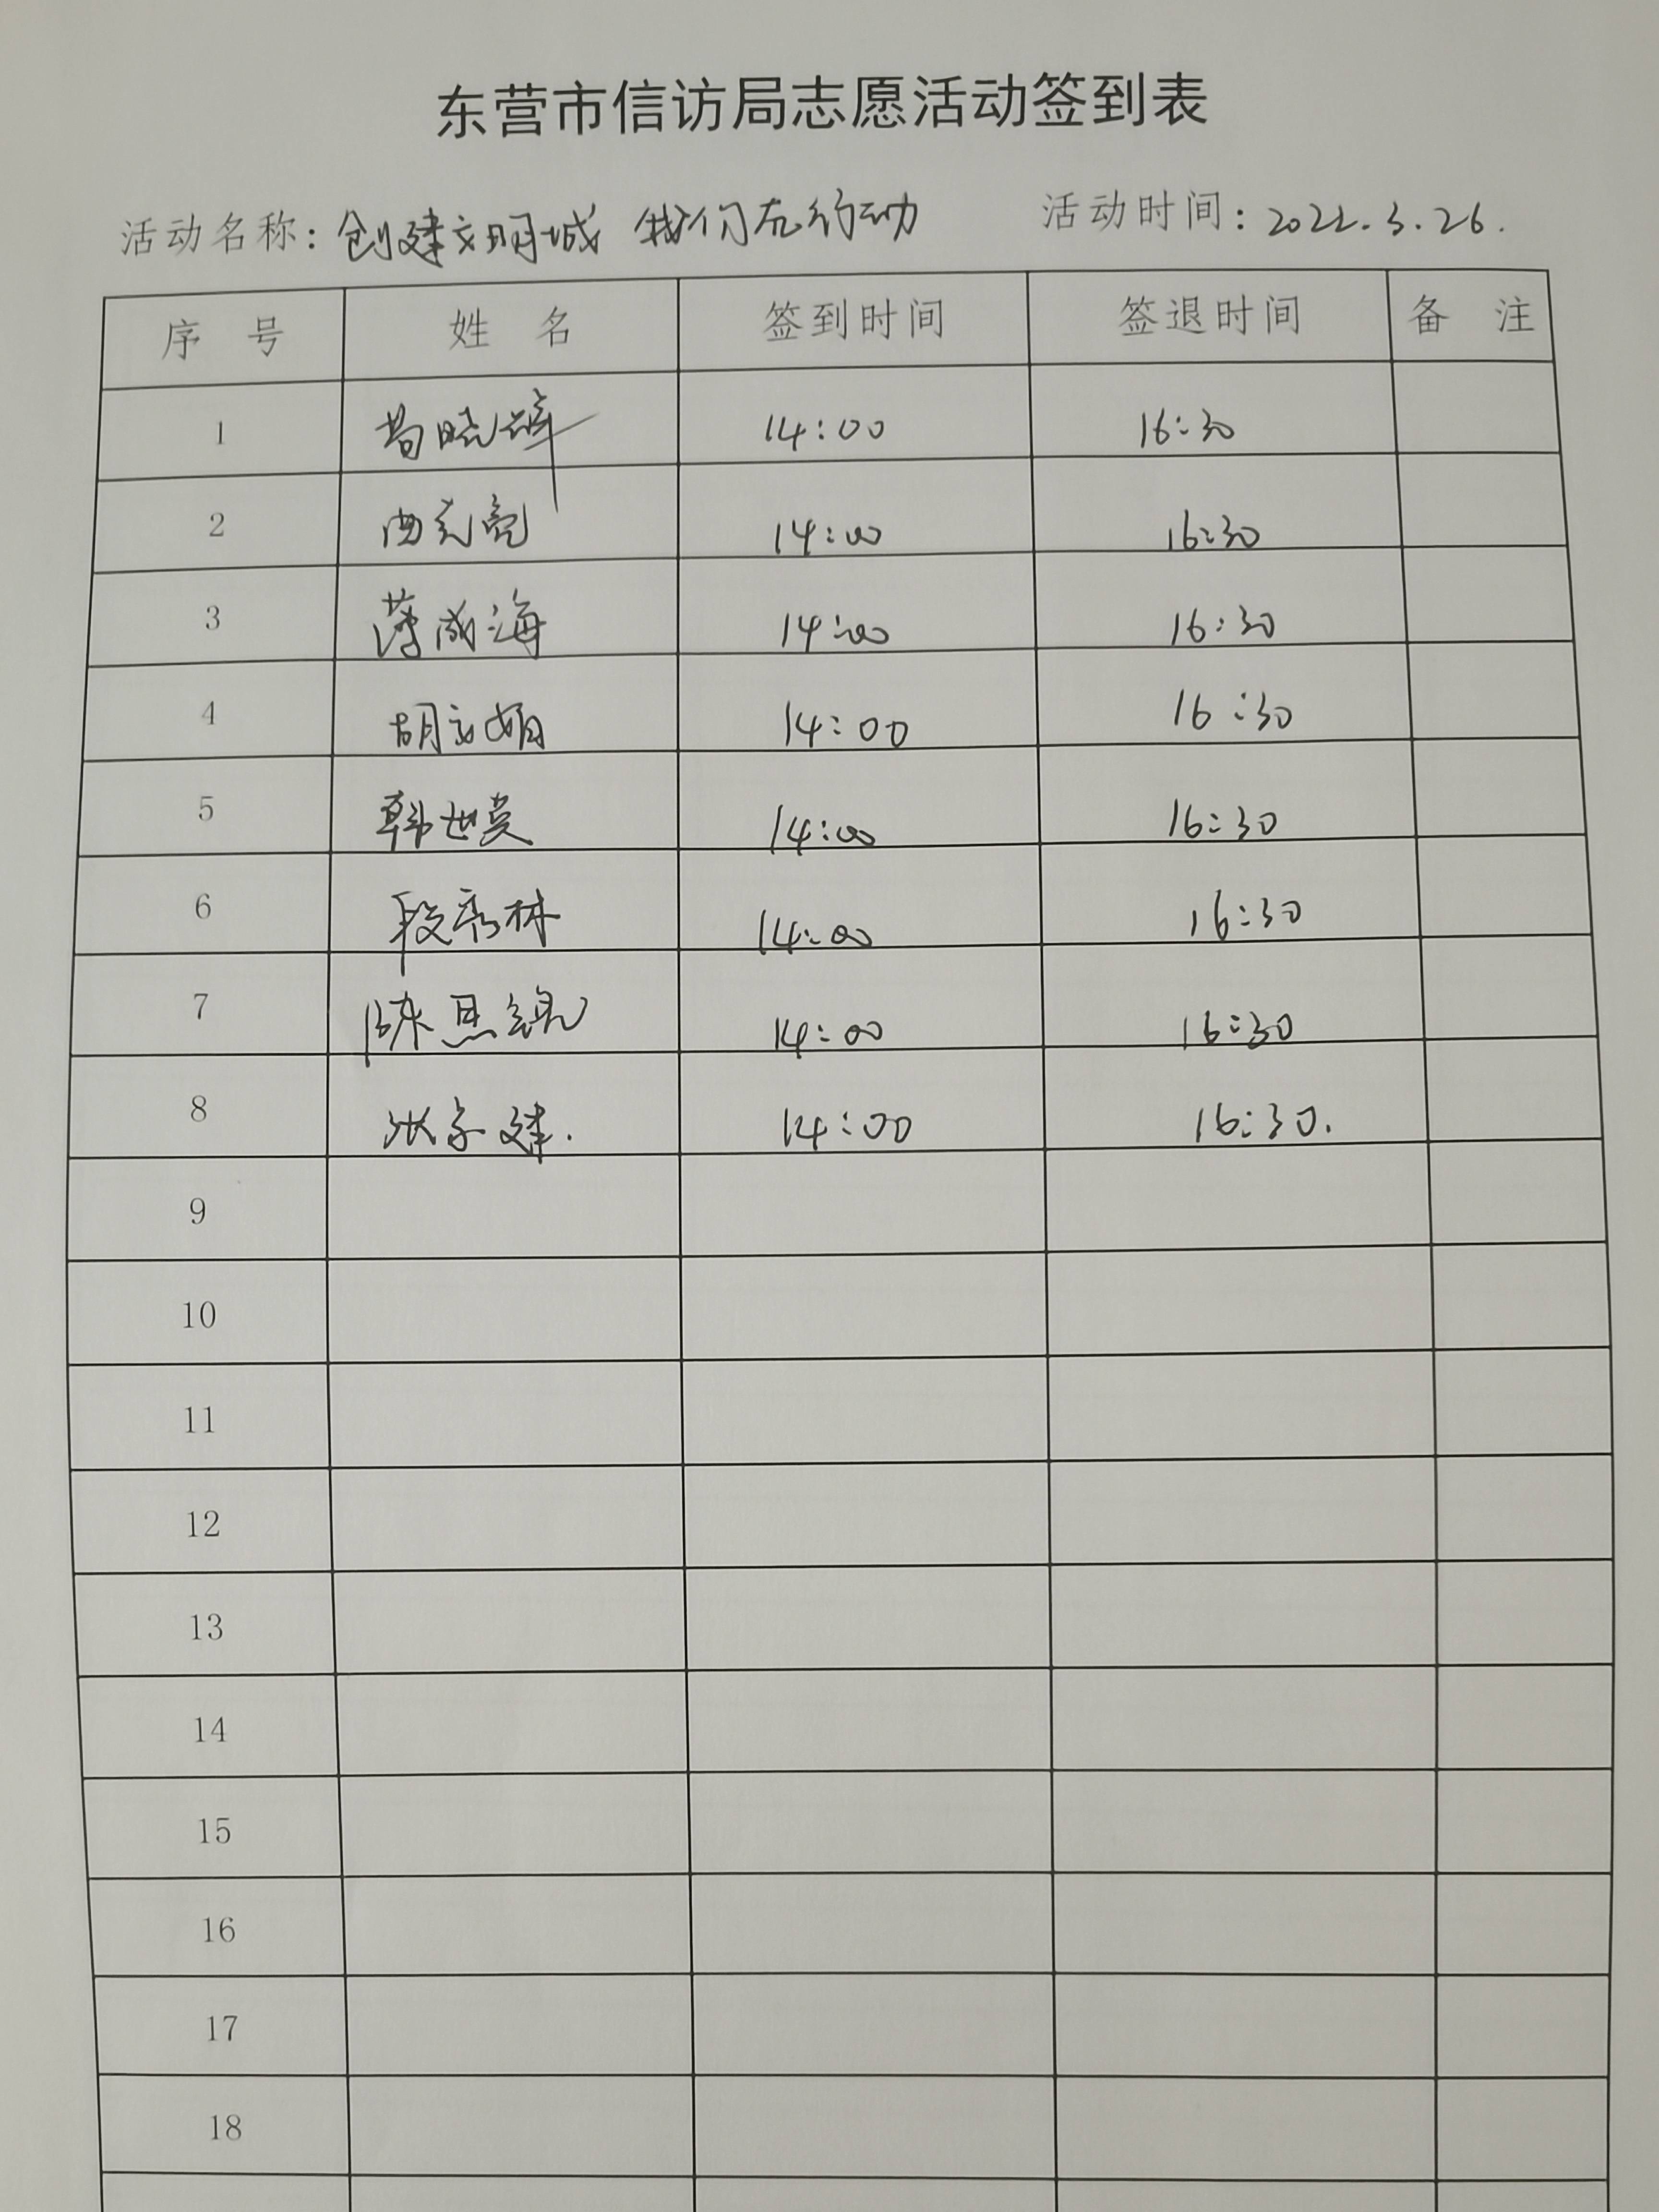 东营市信访局志愿活动签到表
活动名称：创建文明城 我们在行动 活动时间：2022.3.26.
序 号 姓 名 签到时间 签退时间 备 注
1 14:00 16:30
2 曲克亮 14:00 16:30
3 薄成海 14:00 16:30
4 胡文娟 14:00 16:30
5 韩世英 14:00 16:30
6 段秀林 14:00 16:30
7 陈思 14:00 16:30
8 张子建. 14:00 16:30.
9
10
11
12
13
14
15
16
17
18